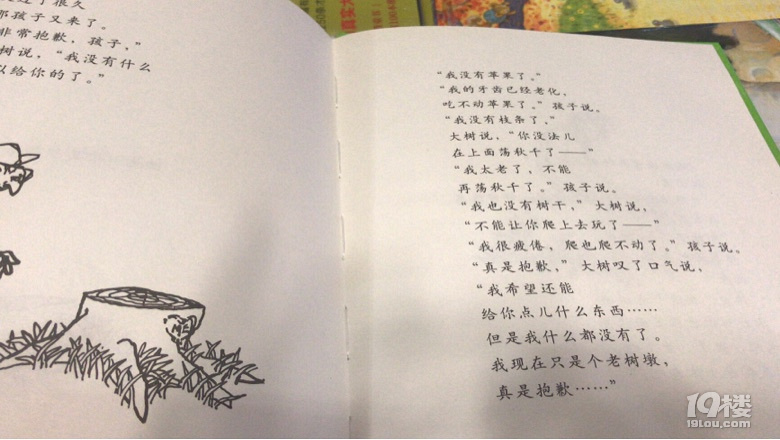 过了很久
那孩子又来了。
非常抱歉，孩子，”
树说，“我没有什么
以给你的了。”
“我没有苹果了。”
“我的牙齿已经老化，
吃不动苹果了。”孩子说。
“我没有枝条了，”
大树说，“你没法儿
在上面荡秋千了——”
“我太老了，不能
再荡秋千了。”孩子说。
“我也没有树干，”大树说，
“不能让你爬上去玩了——”
“我很疲倦，爬也爬不动了。”孩子说。
“真是抱歉，”大树叹了口气说，
“我希望还能
给你点儿什么东西……
但是我什么都没有了。
我现在只是个老树墩，
真是抱歉……”
19楼
19lou.com